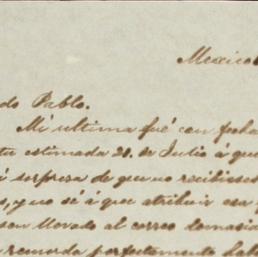 Mexico
do Pablo.
Mi ultima fué con fecha
tu estimada 21. de Julio á que
sorpresa de que no recibieses
s, y no sé á que atribuir esa
llevado al correo demasia
remorda perfectamente